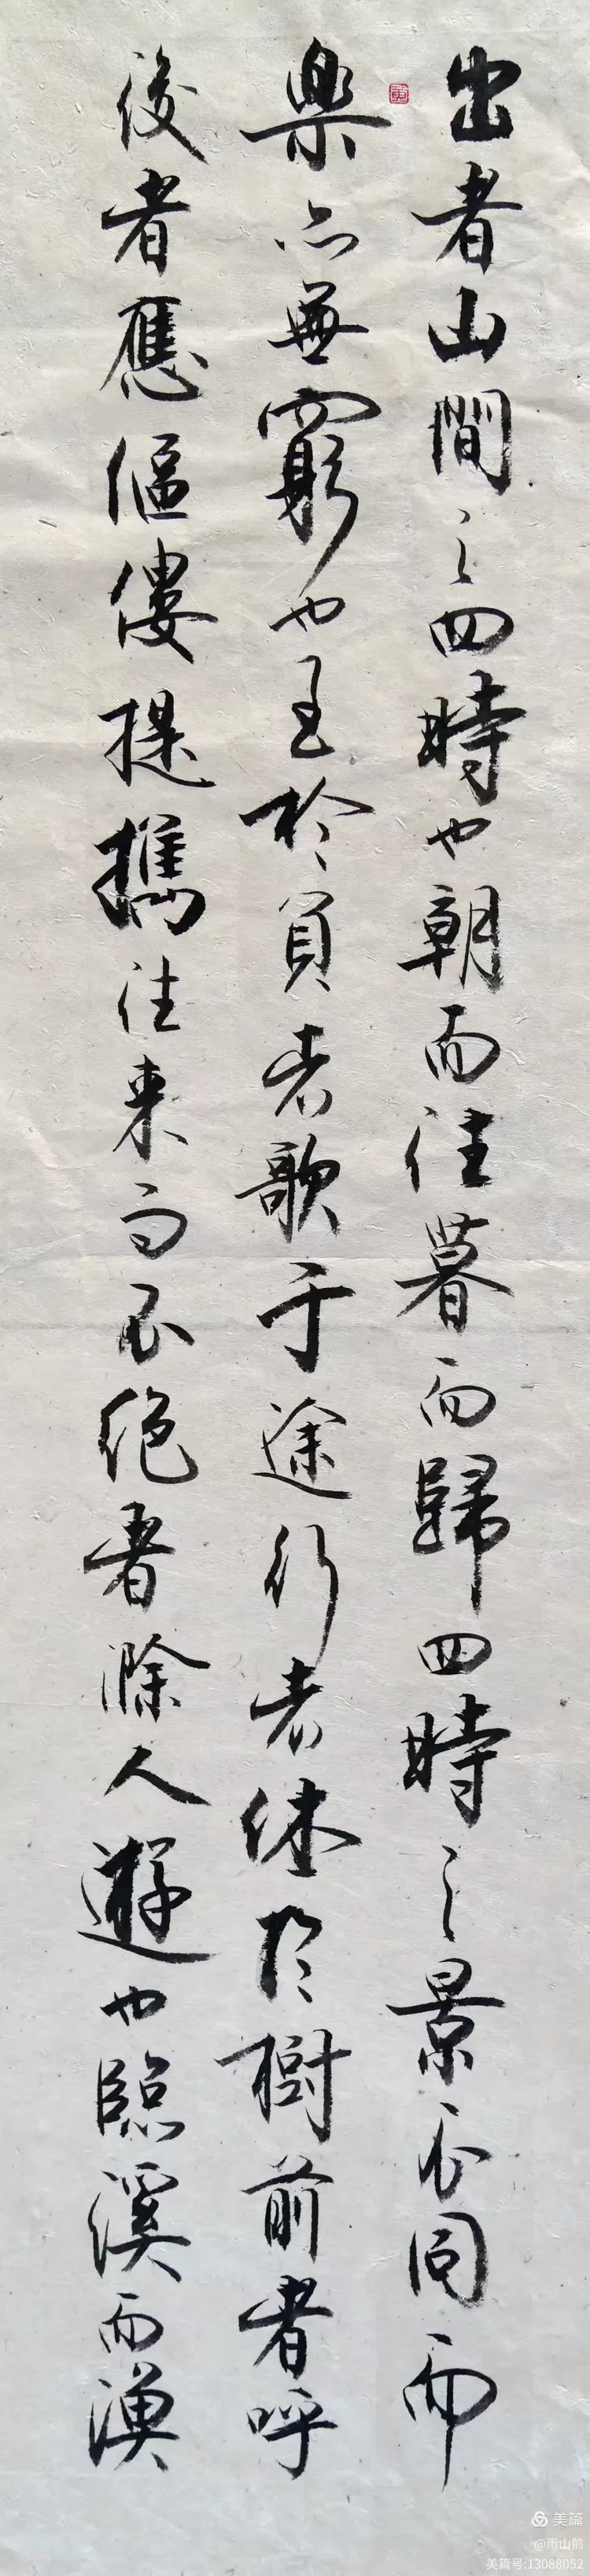 出者山間之四時也朝而往暮而歸四時之景不同而
樂亦無窮也至於負者歌于途行者休於樹前者呼
後者應傴僂提攜往來而不絕者滁人遊也臨溪而漁
美篇
@雨山前
美篇号:13088052